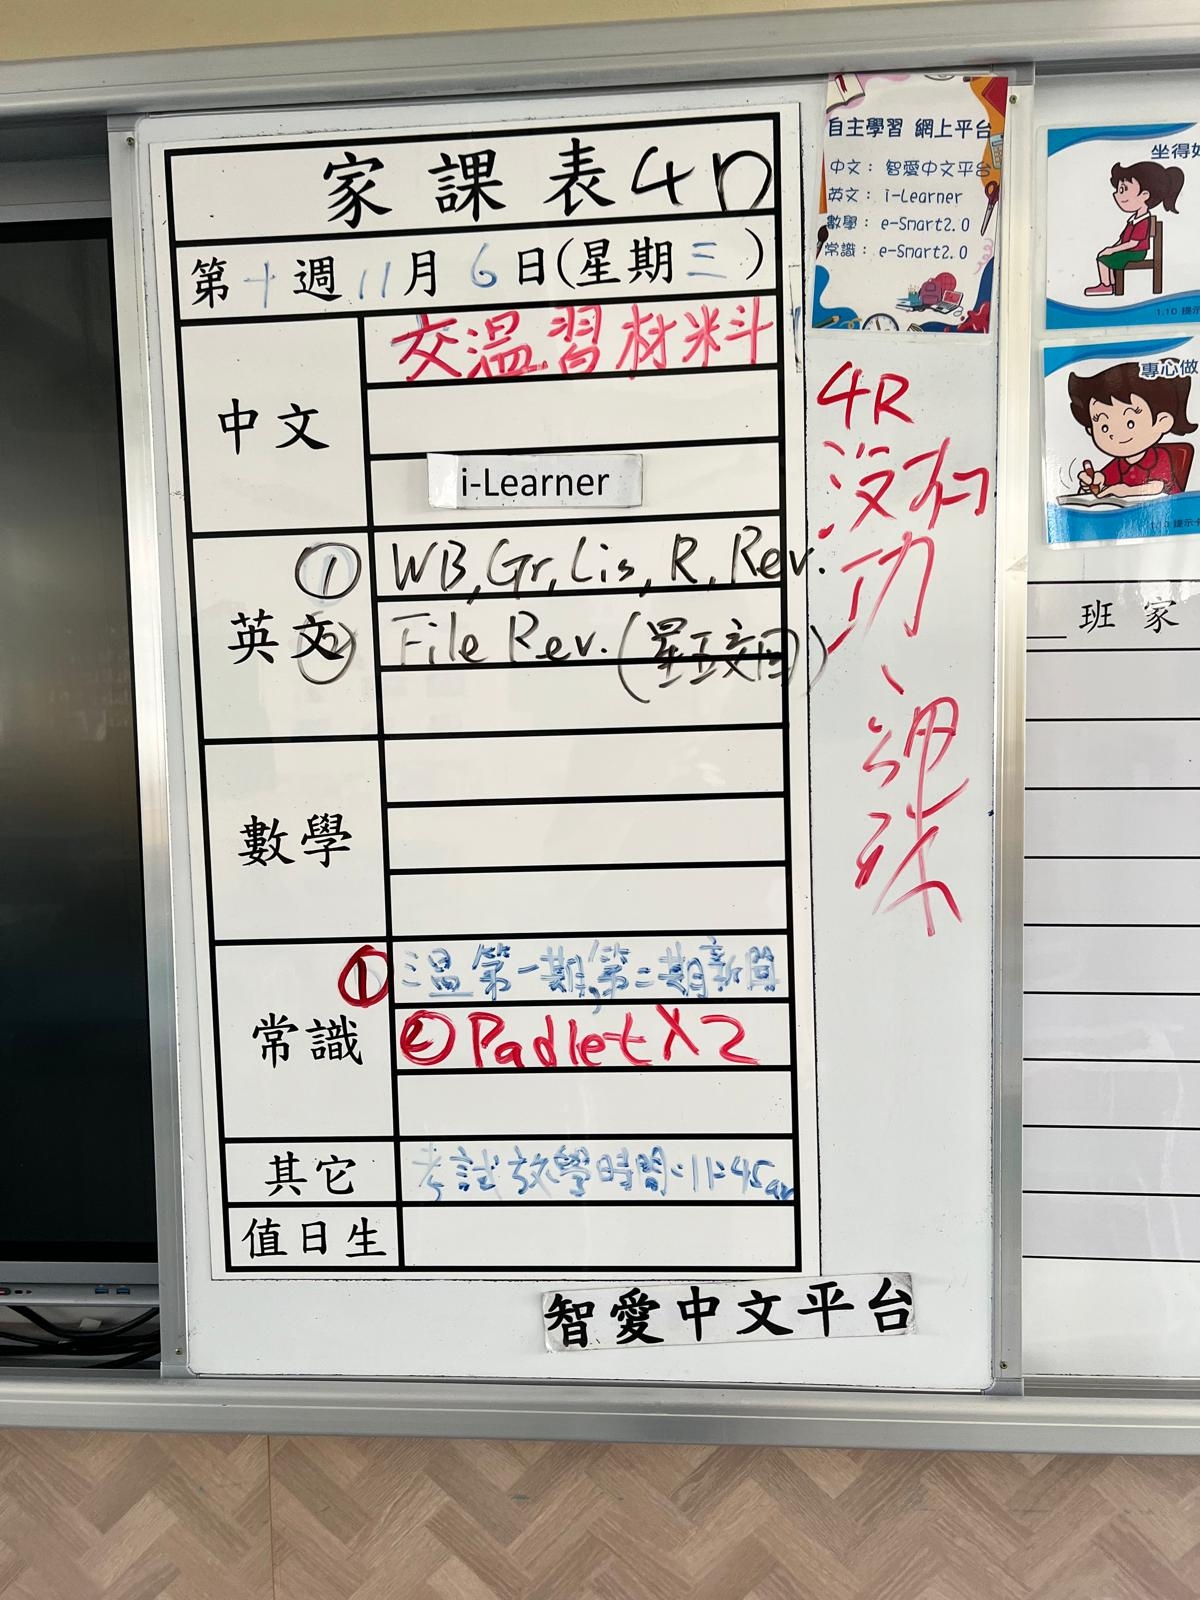 家課表4D
第十週11月6日(星期三)
中文
交溫習材料
i-Learner
英文
① WB, Gr, Lis, R, Rev.
② File Rev. (星五交回)
數學
常識
① 溫第一期,第二期新聞
② Padlet X2
其它
考試放學時間:11:45am
值日生
智愛中文平台
自主學習 網上平台
中文：智愛中文平台
英文：i-Learner
數學：e-Smart2.0
常識：e-Smart2.0
4R
沒有
功
課
坐得好
1.10 提示
專心做
提示卡
班 家